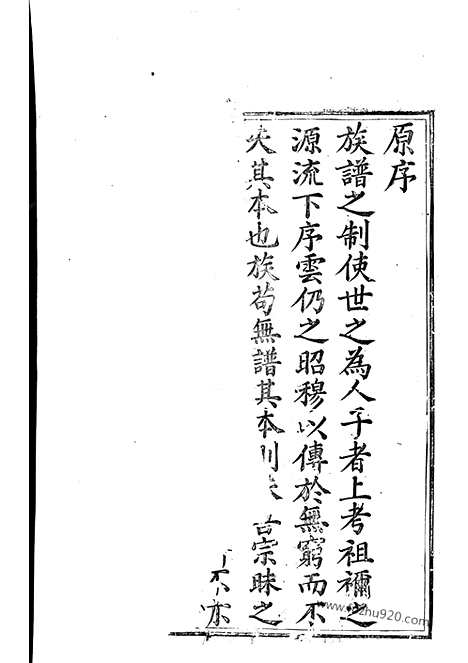 原序
族譜之制使世之為人子者上考祖禰之
源流下序雲仍之昭穆以傳於無窮而不
失其本也族茍無譜其本則失 宗昧之
不 宗
zhu920.com